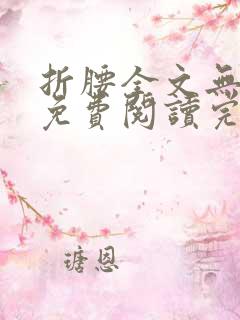 折腰全文無
免費閱讀完
瑭恩